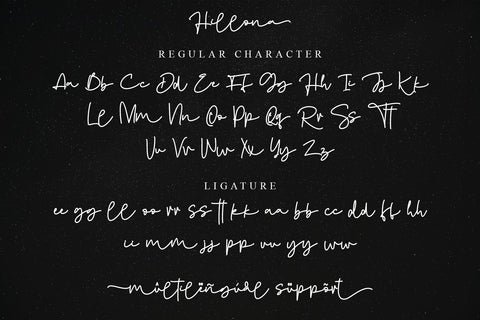 Hillona
REGULAR CHARACTER
Aa Bb Cc Dd Ee Ff Gg Hh Ii Jj Kk
Ll Mm Nn Oo Pp Qq Rr Ss Tt
Uu Vv Ww Xx Yy Zz
LIGATURE
ee gg ll oo rr ss tt kk aa bb cc dd ff hh
ii mm jj pp uu yy ww
multilingüal süppört